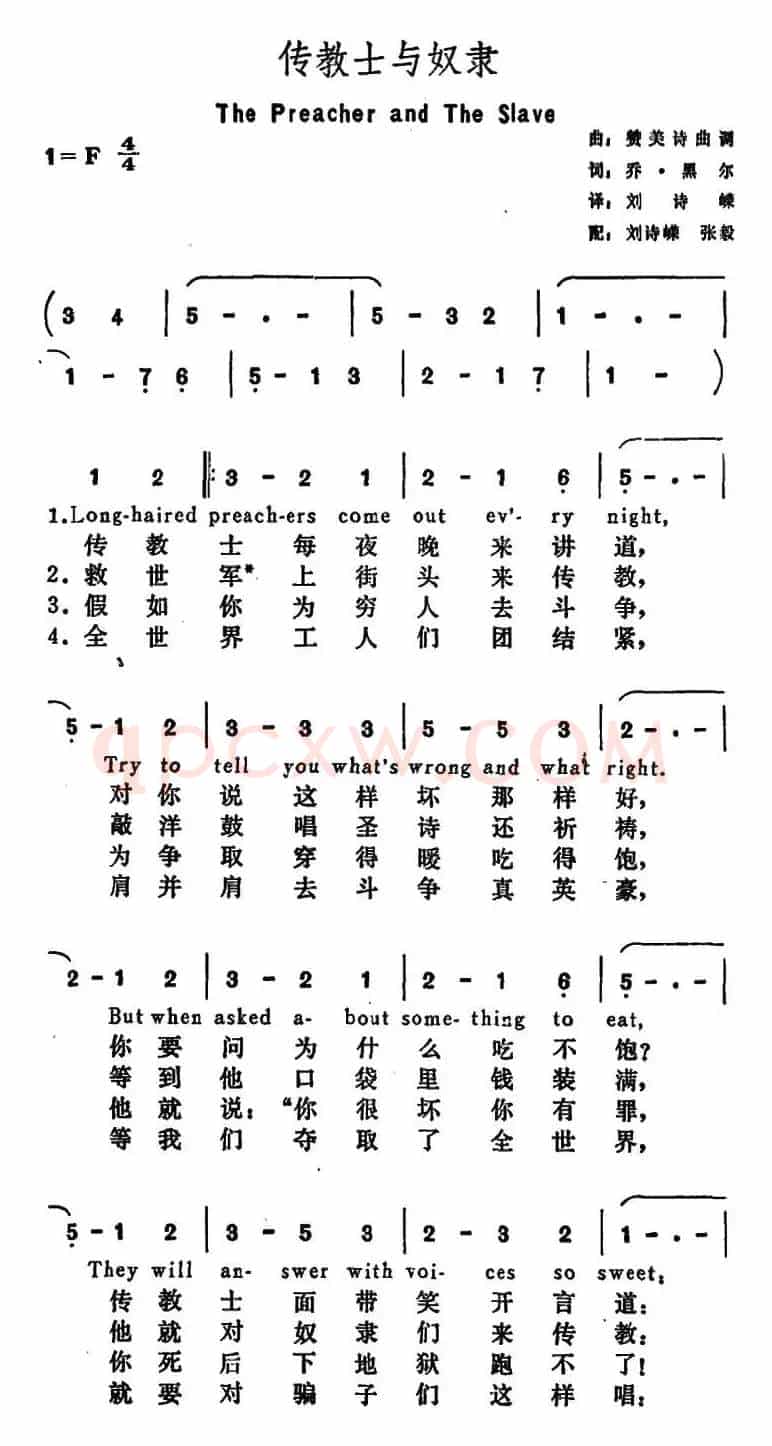 传教士与奴隶
The Preacher and The Slave
1=F 4/4
曲：赞美诗曲调
词：乔·黑尔
译：刘诗嵘
配：刘诗嵘 张毅
(3 4 | 5 - · - | 5 - 3 2 | 1 - · - |
1 - 7 6 | 5 - 1 3 | 2 - 1 7 | 1 - )
1 2 ‖: 3 - 2 1 | 2 - 1 6 | 5 - · - |
1. Long-haired preach-ers come out ev'- ry night,
传教士每夜晚来讲道，
2. 救世军*上街头来传教，
3. 假如你为穷人去斗争，
4. 全世界工人们团结紧，
5 - 1 2 | 3 - 3 3 | 5 - 5 3 | 2 - · - |
Try to tell you what's wrong and what right.
对你说这样坏那样好，
敲洋鼓唱圣诗还祈祷，
为争取穿得暖吃得饱，
肩并肩去斗争真英豪，
qpcxw.com
2 - 1 2 | 3 - 2 1 | 2 - 1 6 | 5 - · - |
But when asked a- bout some- thing to eat,
你要问为什么吃不饱？
等到他口袋里钱装满，
他就说：“你很坏你有罪，
等我们夺取了全世界，
5 - 1 2 | 3 - 5 3 | 2 - 3 2 | 1 - · - |
They will an- swer with voi- ces so sweet;
传教士面带笑开言道：
他就对奴隶们来传教：
你死后下地狱跑不了！
就要对骗子们这样唱：